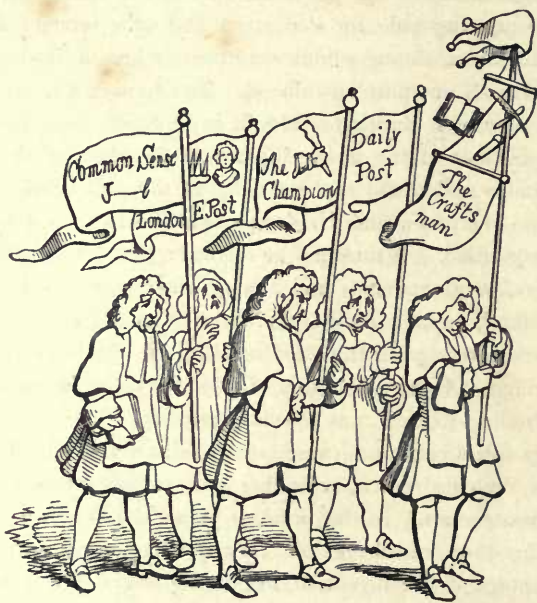 Common Sense
J—l
London E.Post
The
Champion
Daily
Post
The
Crafts
man